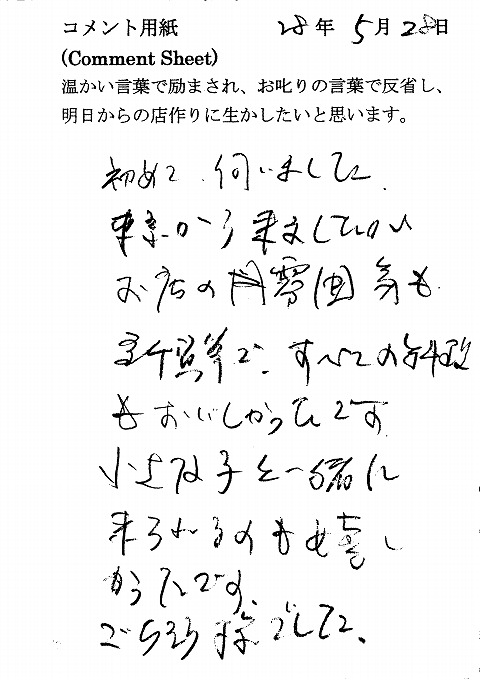 コメント用紙 28年 5月 28日
(Comment Sheet)
温かい言葉で励まされ、お叱りの言葉で反省し、
明日からの店作りに生かしたいと思います。
初めて 伺いました
東京から来ましたが
お店の 雰囲気も
新鮮で、すべてのお料理
もおいしかったです
小さな子と一緒に
来られるのもも嬉し
かったです、
ごちそう様でした、